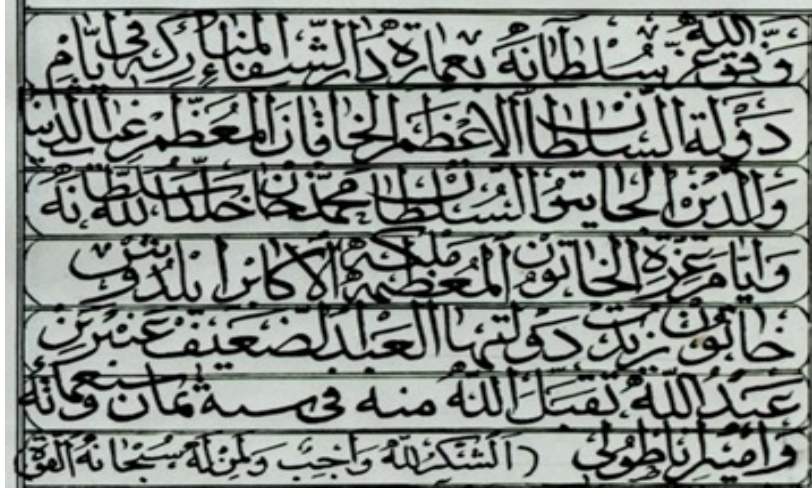 وفق الله عز سلطانه بعمارة دار الشفاء المباركة فى ايام
دولة السلطان الاعظم الخاقان المعظم غياث الدنيا
والدين الجايتو السلطان محمد خان خلد الله سلطانه
وايام عزة الخاتون المعظمة ملكة الاكابر ايلدوس
خاتون زيدت دولتها العبد الضعيف عنبر بن
عبد الله تقبل الله منه فى سنة ثمان وسبعمائة
وامير اناطولى (الشكر لله واجب ولمن له سبحانه القوة)